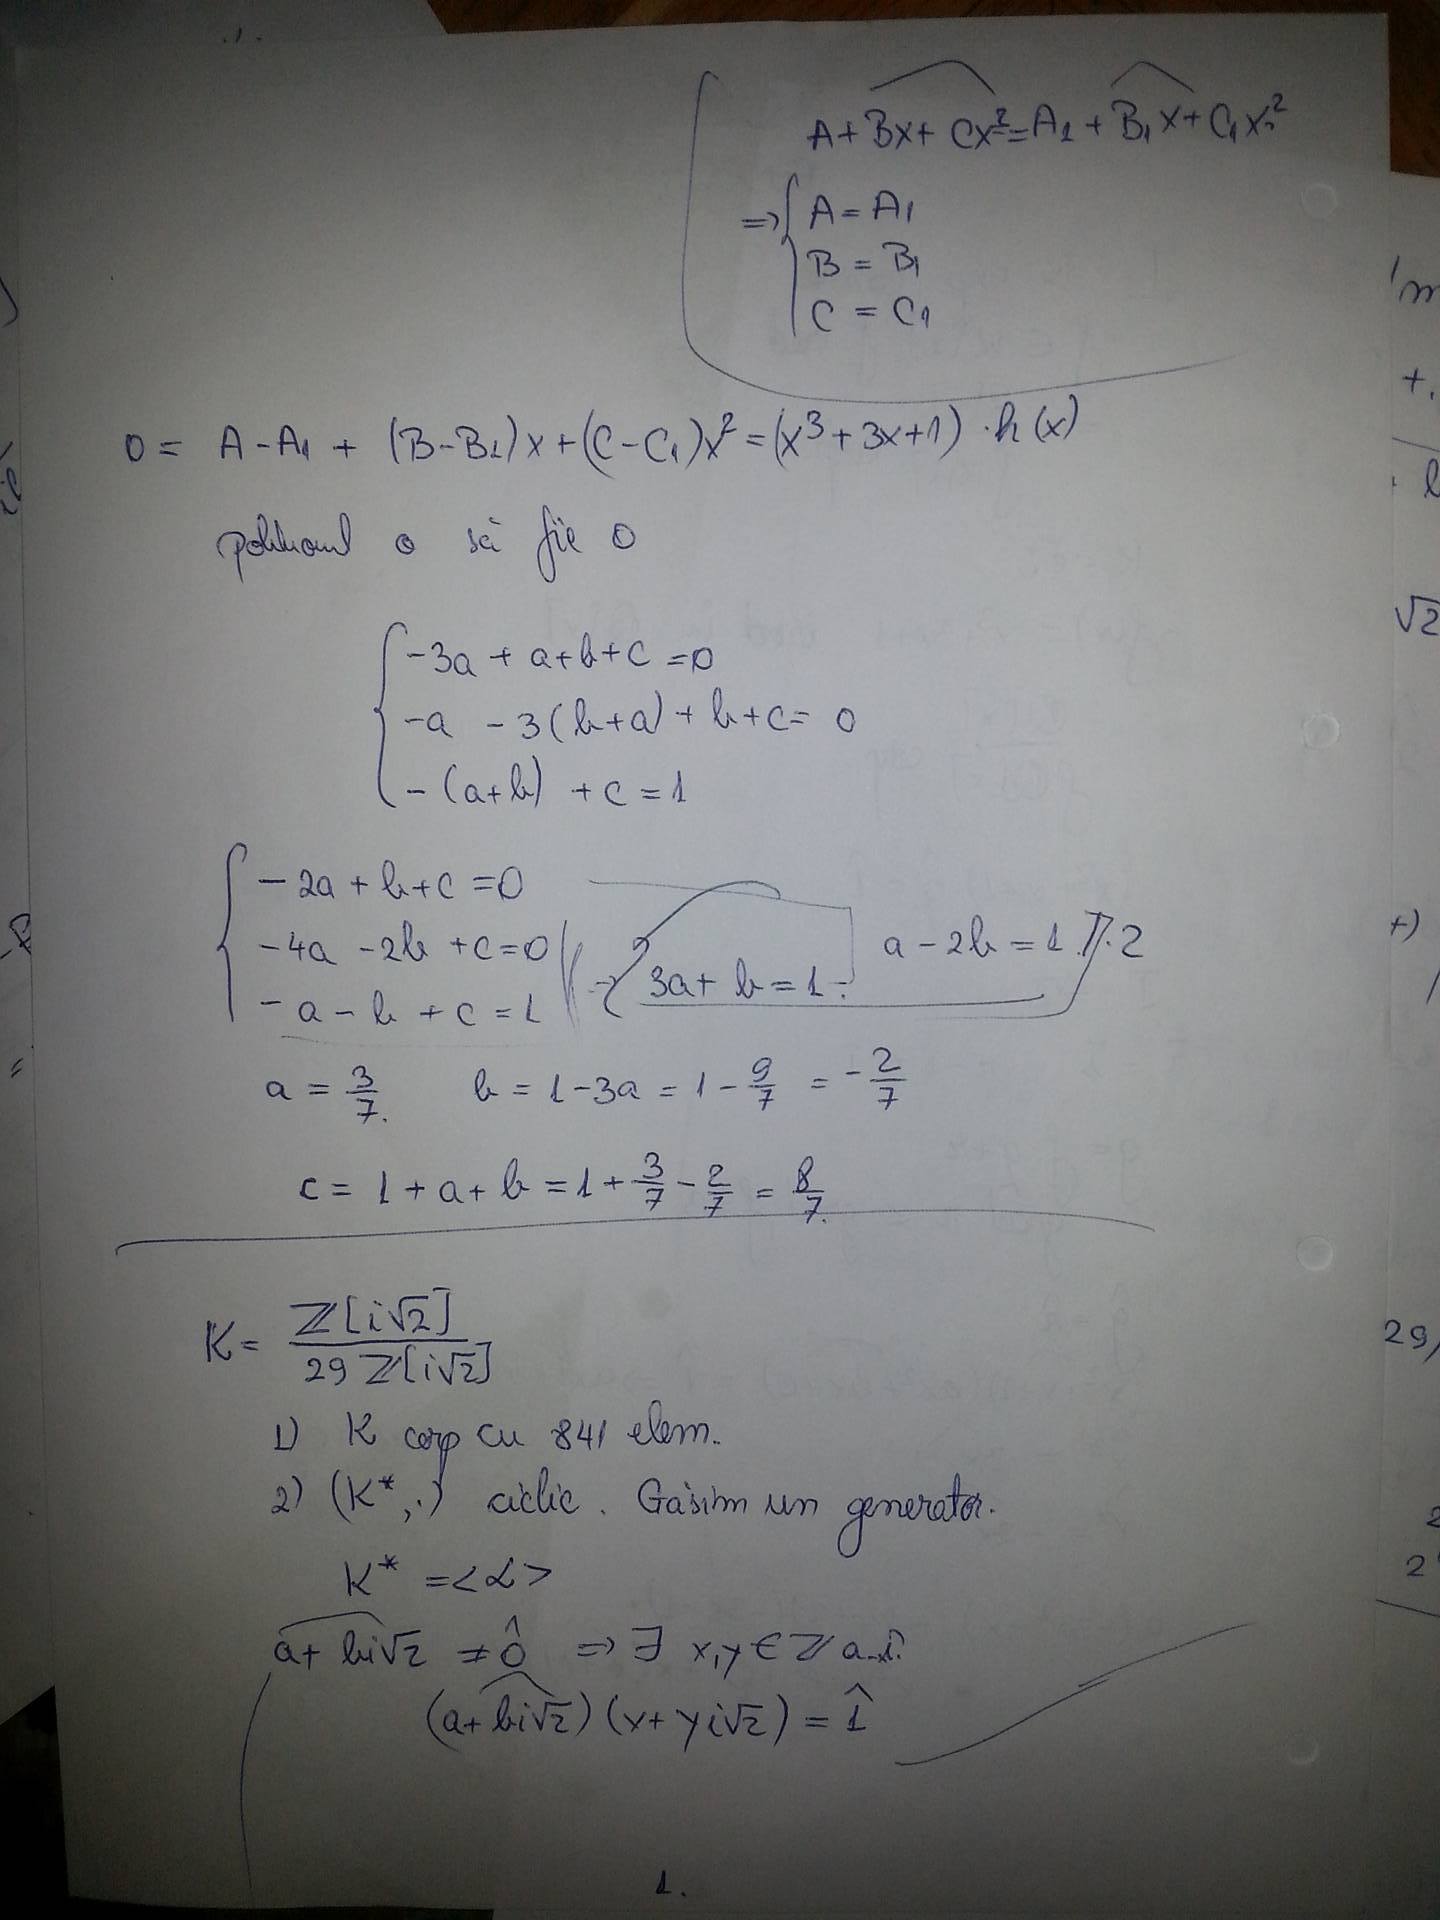 A + Bx + Cx² = A₁ + B₁x + C₁x²
=> { A = A₁
B = B₁
C = C₁
0 = A - A₁ + (B - B₁)x + (C - C₁)x² = (x³ + 3x + 1) · h(x)
polinomul 0 să fie 0
{ -3a + a + b + c = 0
-a - 3(b + a) + b + c = 0
-(a + b) + c = 1
{ -2a + b + c = 0
-4a - 2b + c = 0
a - 2b = 1 | · 2
3a + b = 1
-a - b + c = 1
a = 3/7. b = 1 - 3a = 1 - 9/7 = -2/7
c = 1 + a + b = 1 + 3/7 - 2/7 = 8/7.
K = Z[i√2] / 29 Z[i√2]
1) K corp cu 841 elem.
2) (K*, ·) ciclic. Găsim un generator.
K* = <α>
a + bi√2 ≠ 0̂ => ∃ x, y ∈ Z a.î.
(a + bi√2)(x + yi√2) = 1̂
1.
√2
+)
29/